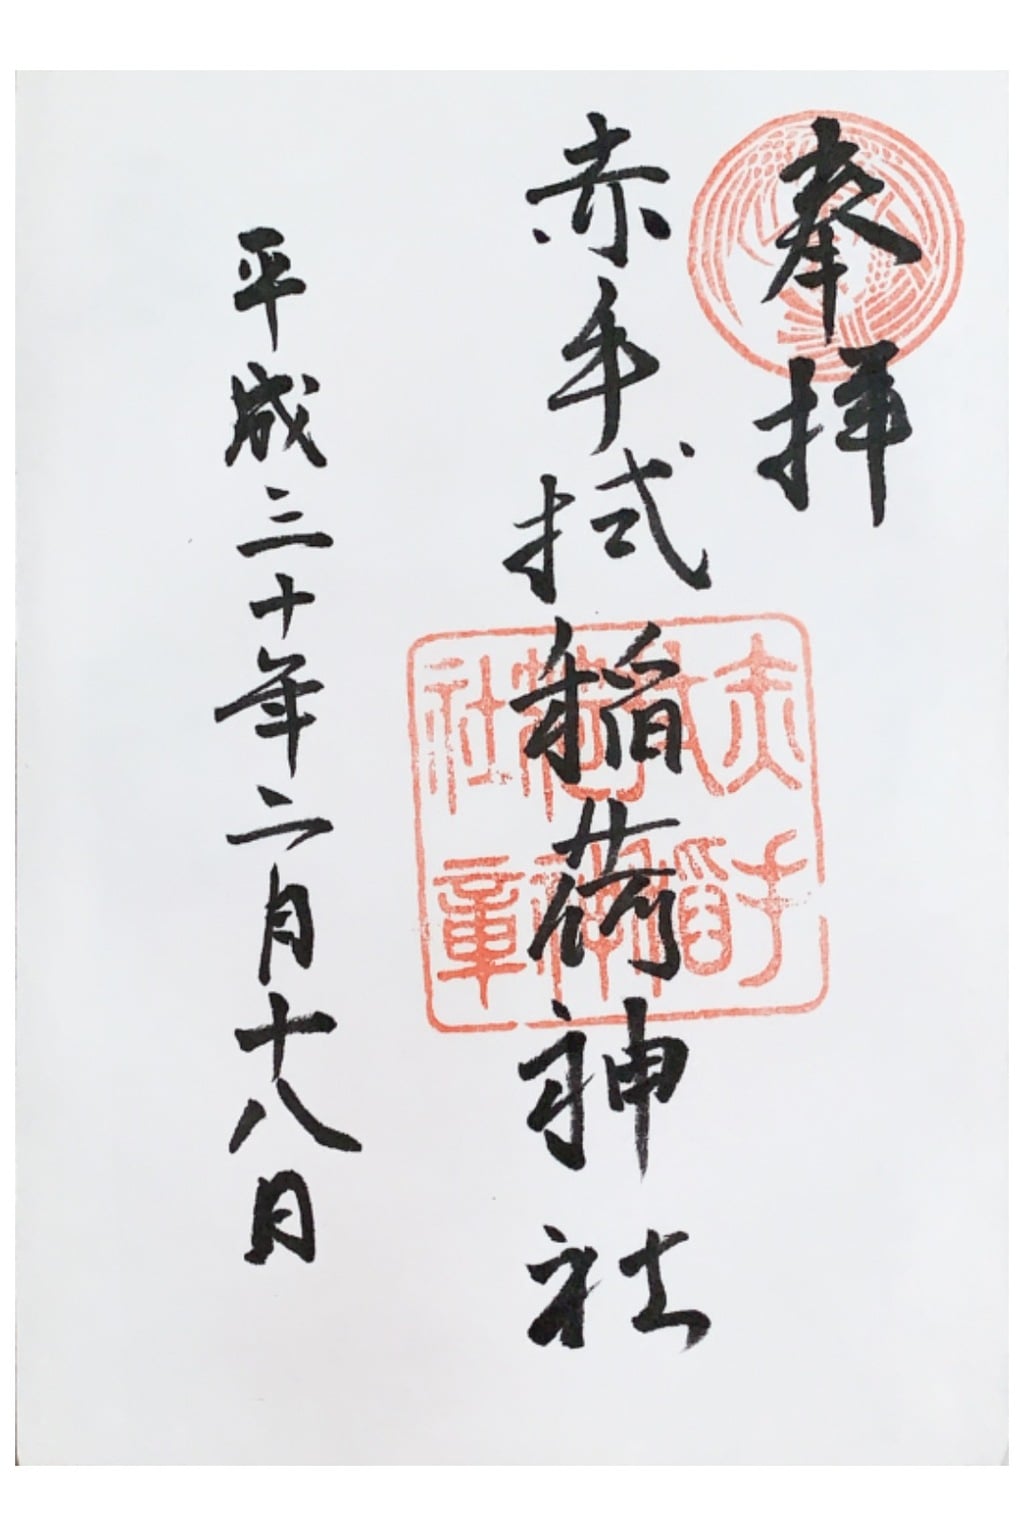 奉拝
赤手拭稲荷神社
赤手
拭稲
荷神
社章
平成三十年二月十八日